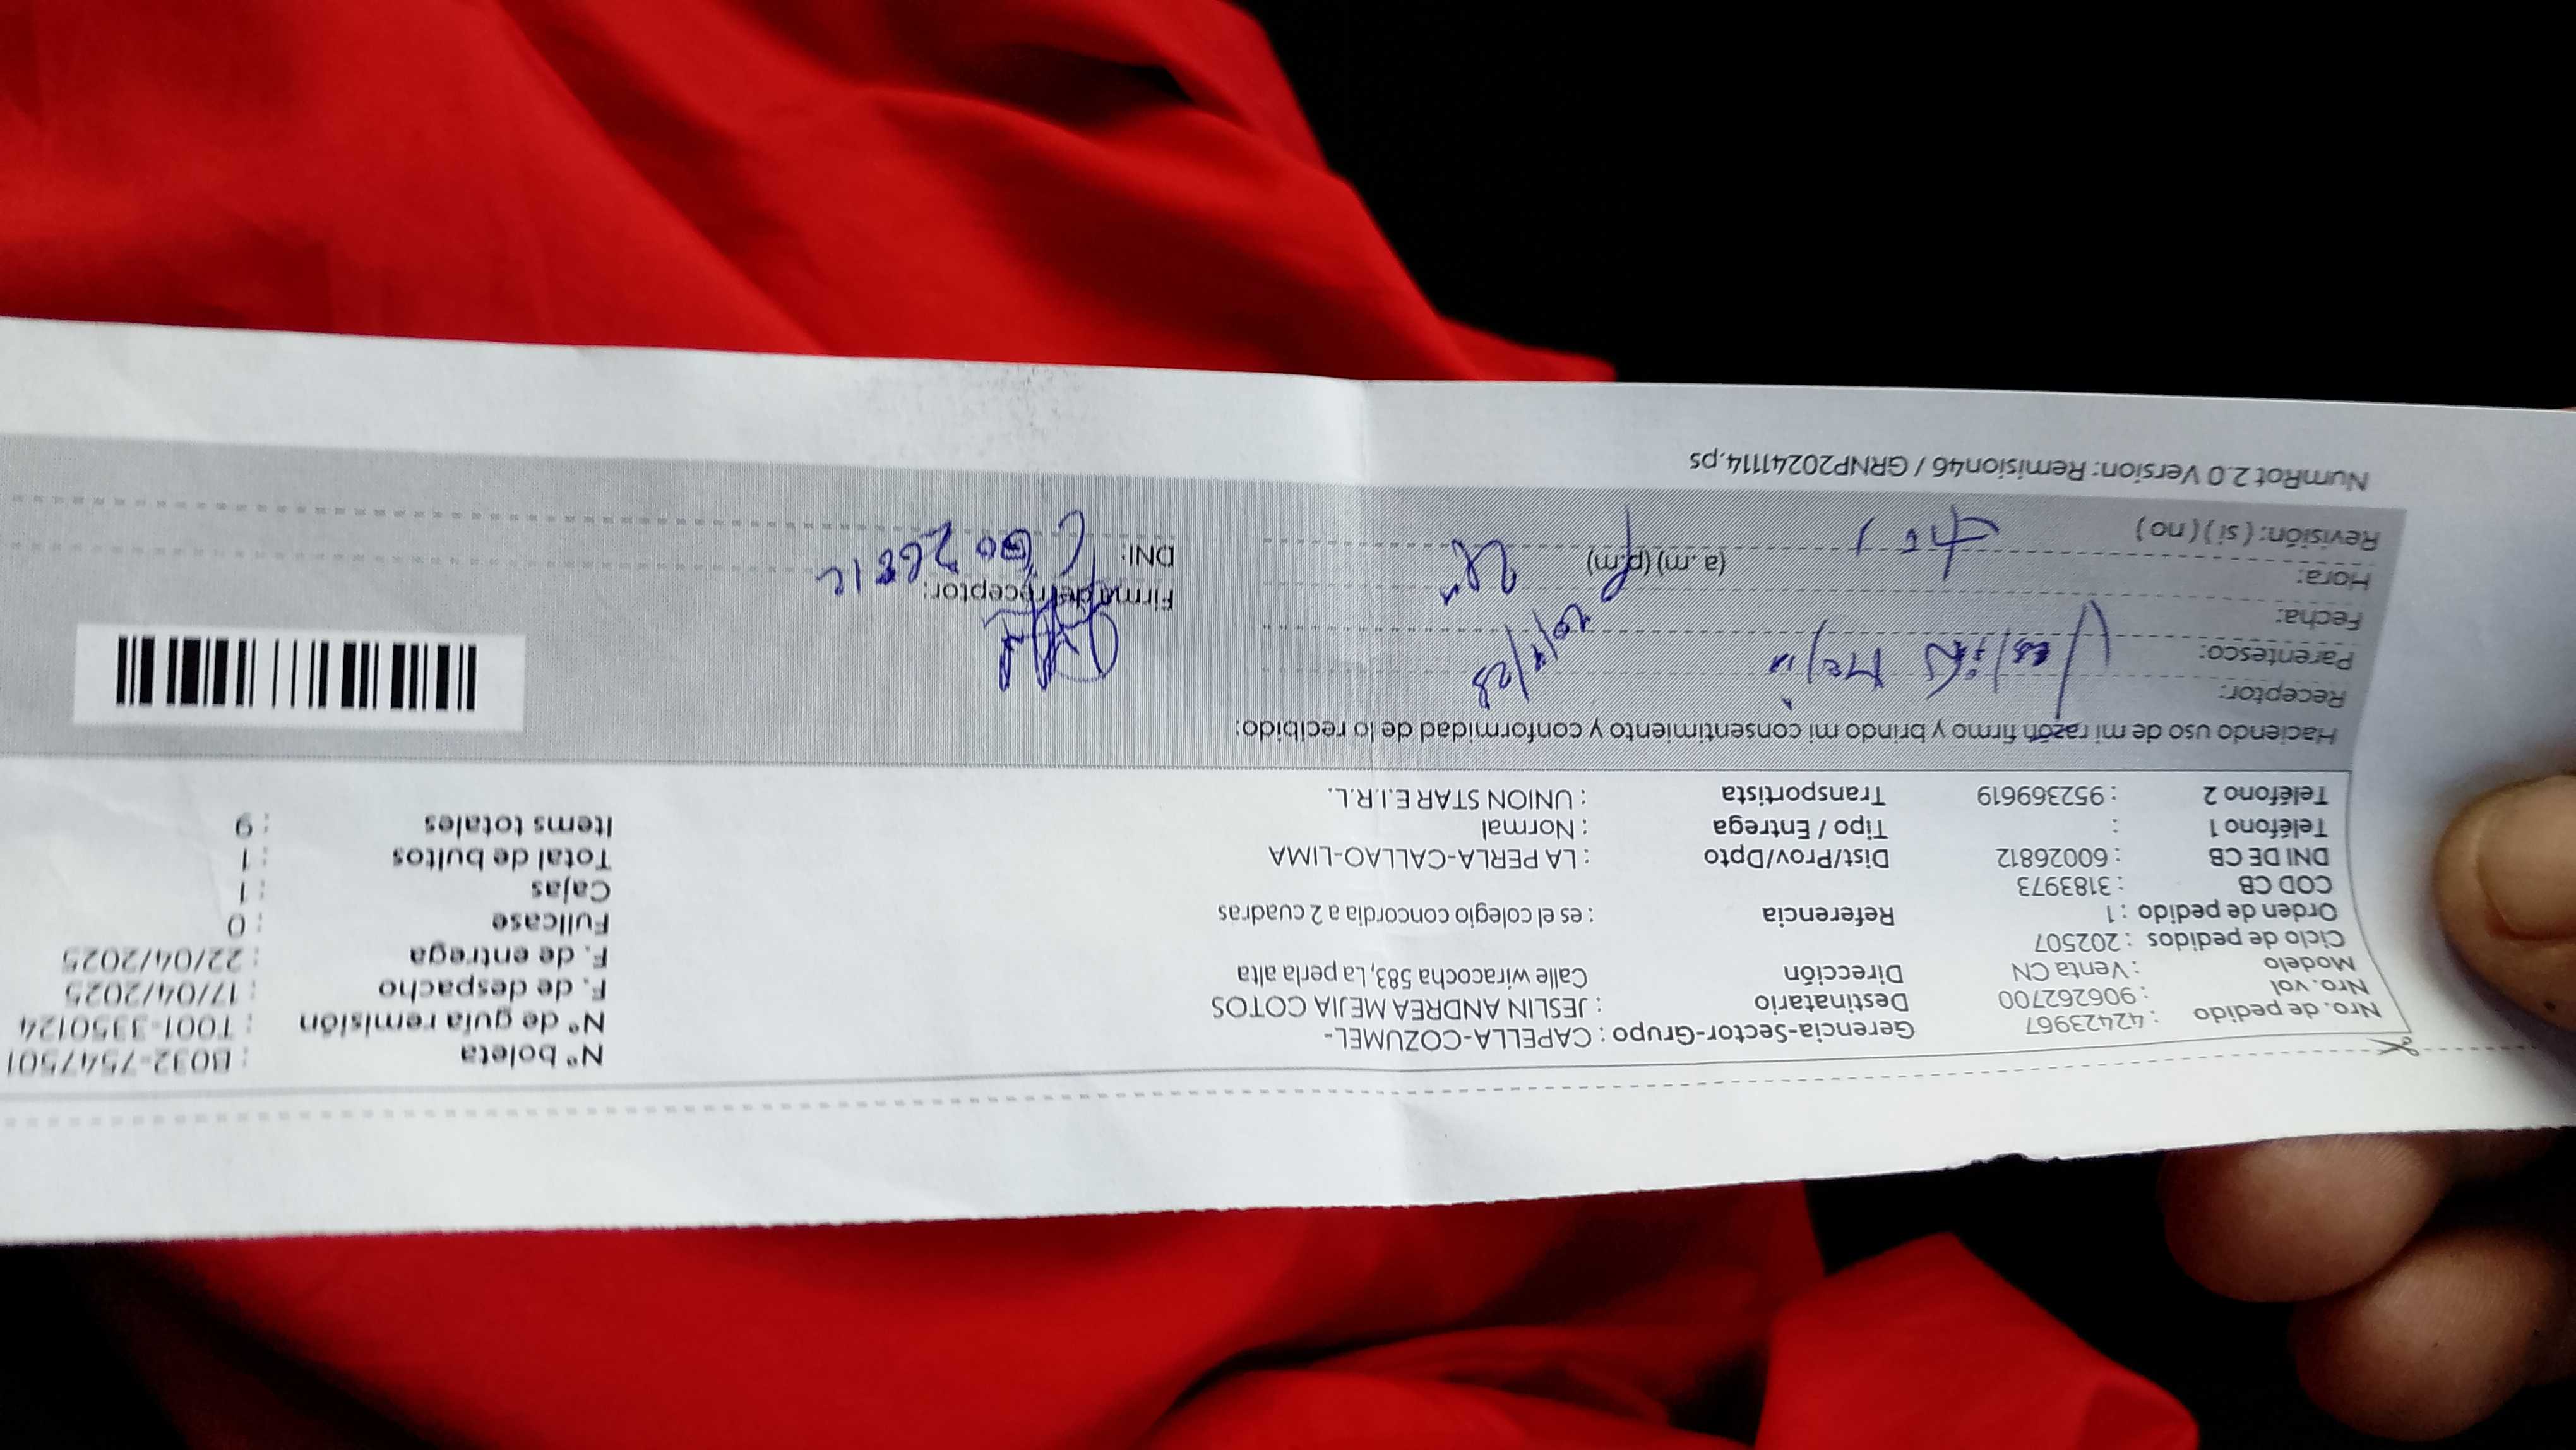 Nro. de pedido : 42423967
Nro. vol : 906262700
Modelo : Venta CN
Ciclo de pedidos : 202507
Orden de pedido : 1
COD CB : 3183973
DNI DE CB : 60026812
Teléfono 1 :
Teléfono 2 : 952369619
Gerencia-Sector-Grupo : CAPELLA-COZUMEL-
Destinatario : JESLIN ANDREA MEJIA COTOS
Dirección Calle wiracocha 583, La perla alta
Referencia : es el colegio concordia a 2 cuadras
Dist/Prov/Dpto : LA PERLA-CALLAO-LIMA
Tipo / Entrega : Normal
Transportista : UNION STAR E.I.R.L.
Nº boleta : B032-7547501
Nº de guía remisión : T001-3350124
F. de despacho : 17/04/2025
F. de entrega : 22/04/2025
Fullcase : 0
Cajas : 1
Total de bultos : 1
Items totales : 9
Haciendo uso de mi razón firmo y brindo mi consentimiento y conformidad de lo recibido:
Receptor:
Parentesco: Mejia
Fecha:
Hora: (a.m) (p.m)
Revisión: ( si ) ( no )
Firma del receptor:
DNI:
NumRot 2.0 Version: Remision46 / GRNP20241114.ps